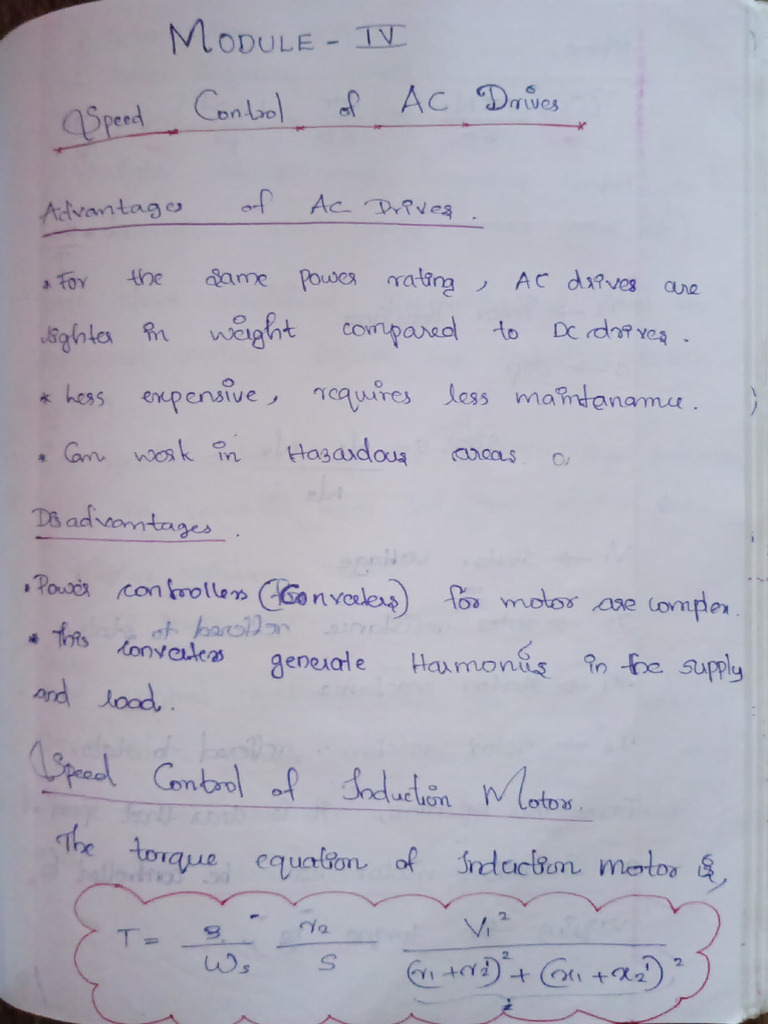 MODULE - IV
Speed Control of AC Drives
Advantages of AC Drives.
* For the same power rating, AC drives are
lighter in weight compared to DC drives.
* Less expensive, requires less maintanance.
* Can work in Hazardous areas
Disadvantages.
* Power controllers (Converters) for motor are complex.
* This converters generate Harmonics in the supply
and load.
Speed Control of Induction Motor.
The torque equation of Induction motor is,
T = 3/Ws r2/S V1²/(r1+r2')²+(x1+x2')²